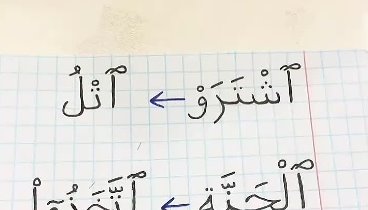 ٱشْتَرَوْ ← ٱتْلُ
ٱلْجَنَّة ← ٱتَّخَذُوٓا۟